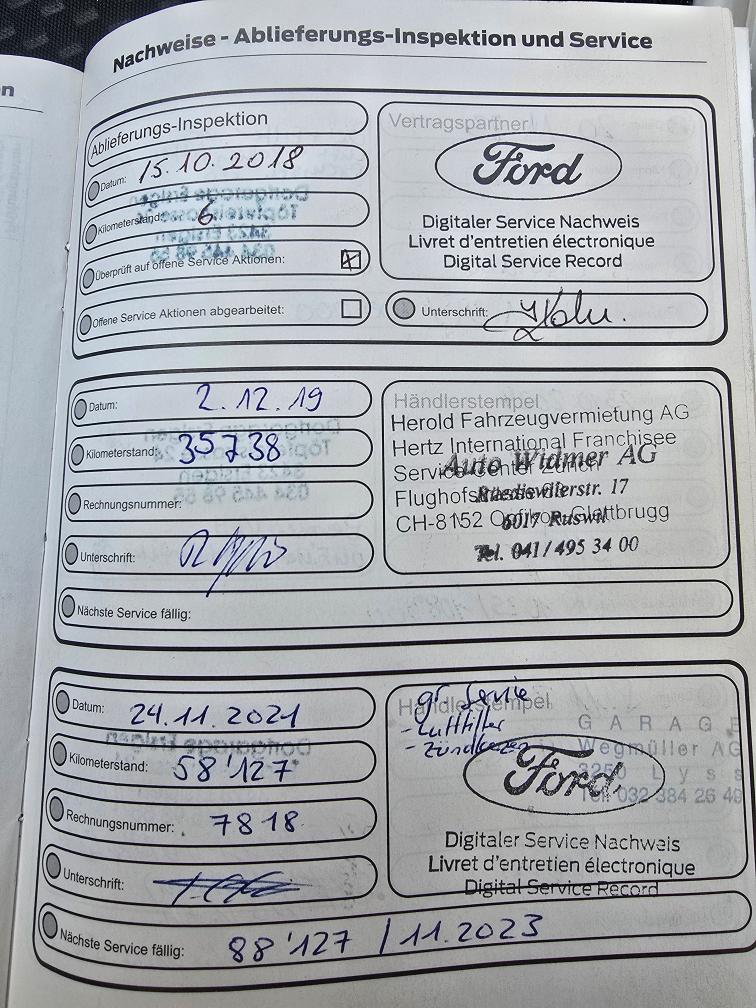 n
Nachweise - Ablieferungs-Inspektion und Service
Ablieferungs-Inspektion
Datum: 15.10.2018
Kilometerstand: 6
Überprüft auf offene Service Aktionen:
Offene Service Aktionen abgearbeitet:
Vertragspartner
Ford
Digitaler Service Nachweis
Livret d'entretien électronique
Digital Service Record
Unterschrift:
Datum: 2.12.19
Kilometerstand: 35738
Rechnungsnummer:
Unterschrift:
Nächste Service fällig:
Händlerstempel
Herold Fahrzeugvermietung AG
Hertz International Franchisee
Auto Widmer AG
Service Center Zürich
Ruediswilerstr. 17
CH-8152 Opfikon-Glattbrugg
6017 Ruswil
Tel. 041/495 34 00
Datum: 24.11.2021
Kilometerstand: 58'127
Rechnungsnummer: 7818
Unterschrift:
Nächste Service fällig: 88'127 / 11.2023
Händlerstempel
gr. Service
- Luftfilter
- Zündkerzen
GARAGE
Wegmüller AG
3250 Lyss
Tel. 032 384 26 49
Ford
Digitaler Service Nachweis
Livret d'entretien électronique
Digital Service Record